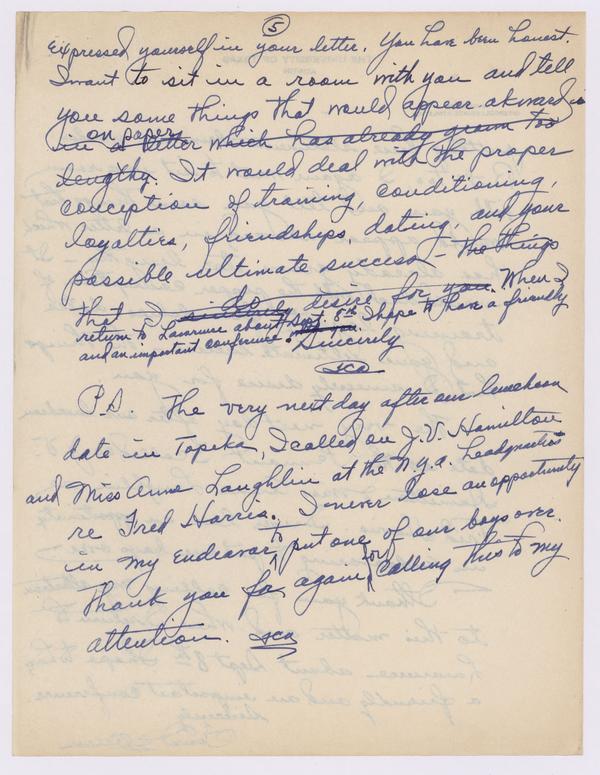 5
expressed yourself in your letter. You have been honest.
I want to sit in a room with you and tell
you some things that would appear akward in
on paper
in a letter which has already grown too
lengthy. It would deal with the proper
conception of training, conditioning,
loyalties, friendships, dating, and your
possible ultimate success – the things
that I sincerely do desire for you. When I
return to Lawrence about Sept. 8th I hope to have a friendly
and an important conference with you.
Sincerely
P.S. The very next day after our luncheon
date in Topeka, I called on J.V. Hamilton
and Miss Anne Laughlin at the N.Y.A. headquarters
re Fred Harris. I never lose an opportunity
in my endeavor to put one of our boys over.
Thank you again for calling this to my
attention.